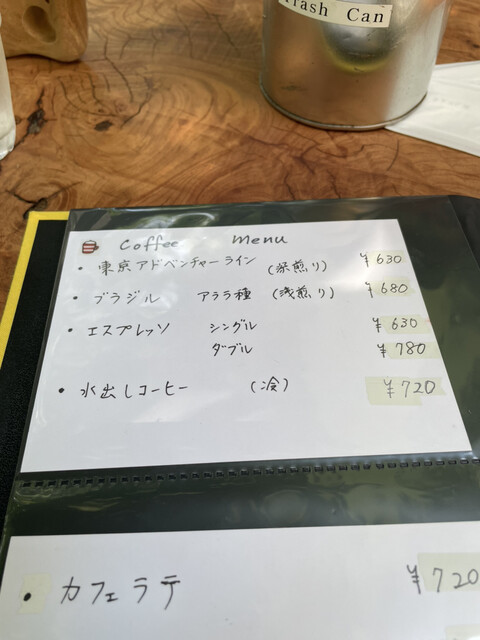 Trash Can
Coffee Menu
・東京アドベンチャーライン (深煎り) ¥630
・ブラジル アララ種 (浅煎り) ¥680
・エスプレッソ シングル ¥630
ダブル ¥780
・水出しコーヒー (冷) ¥720
・カフェラテ ¥720